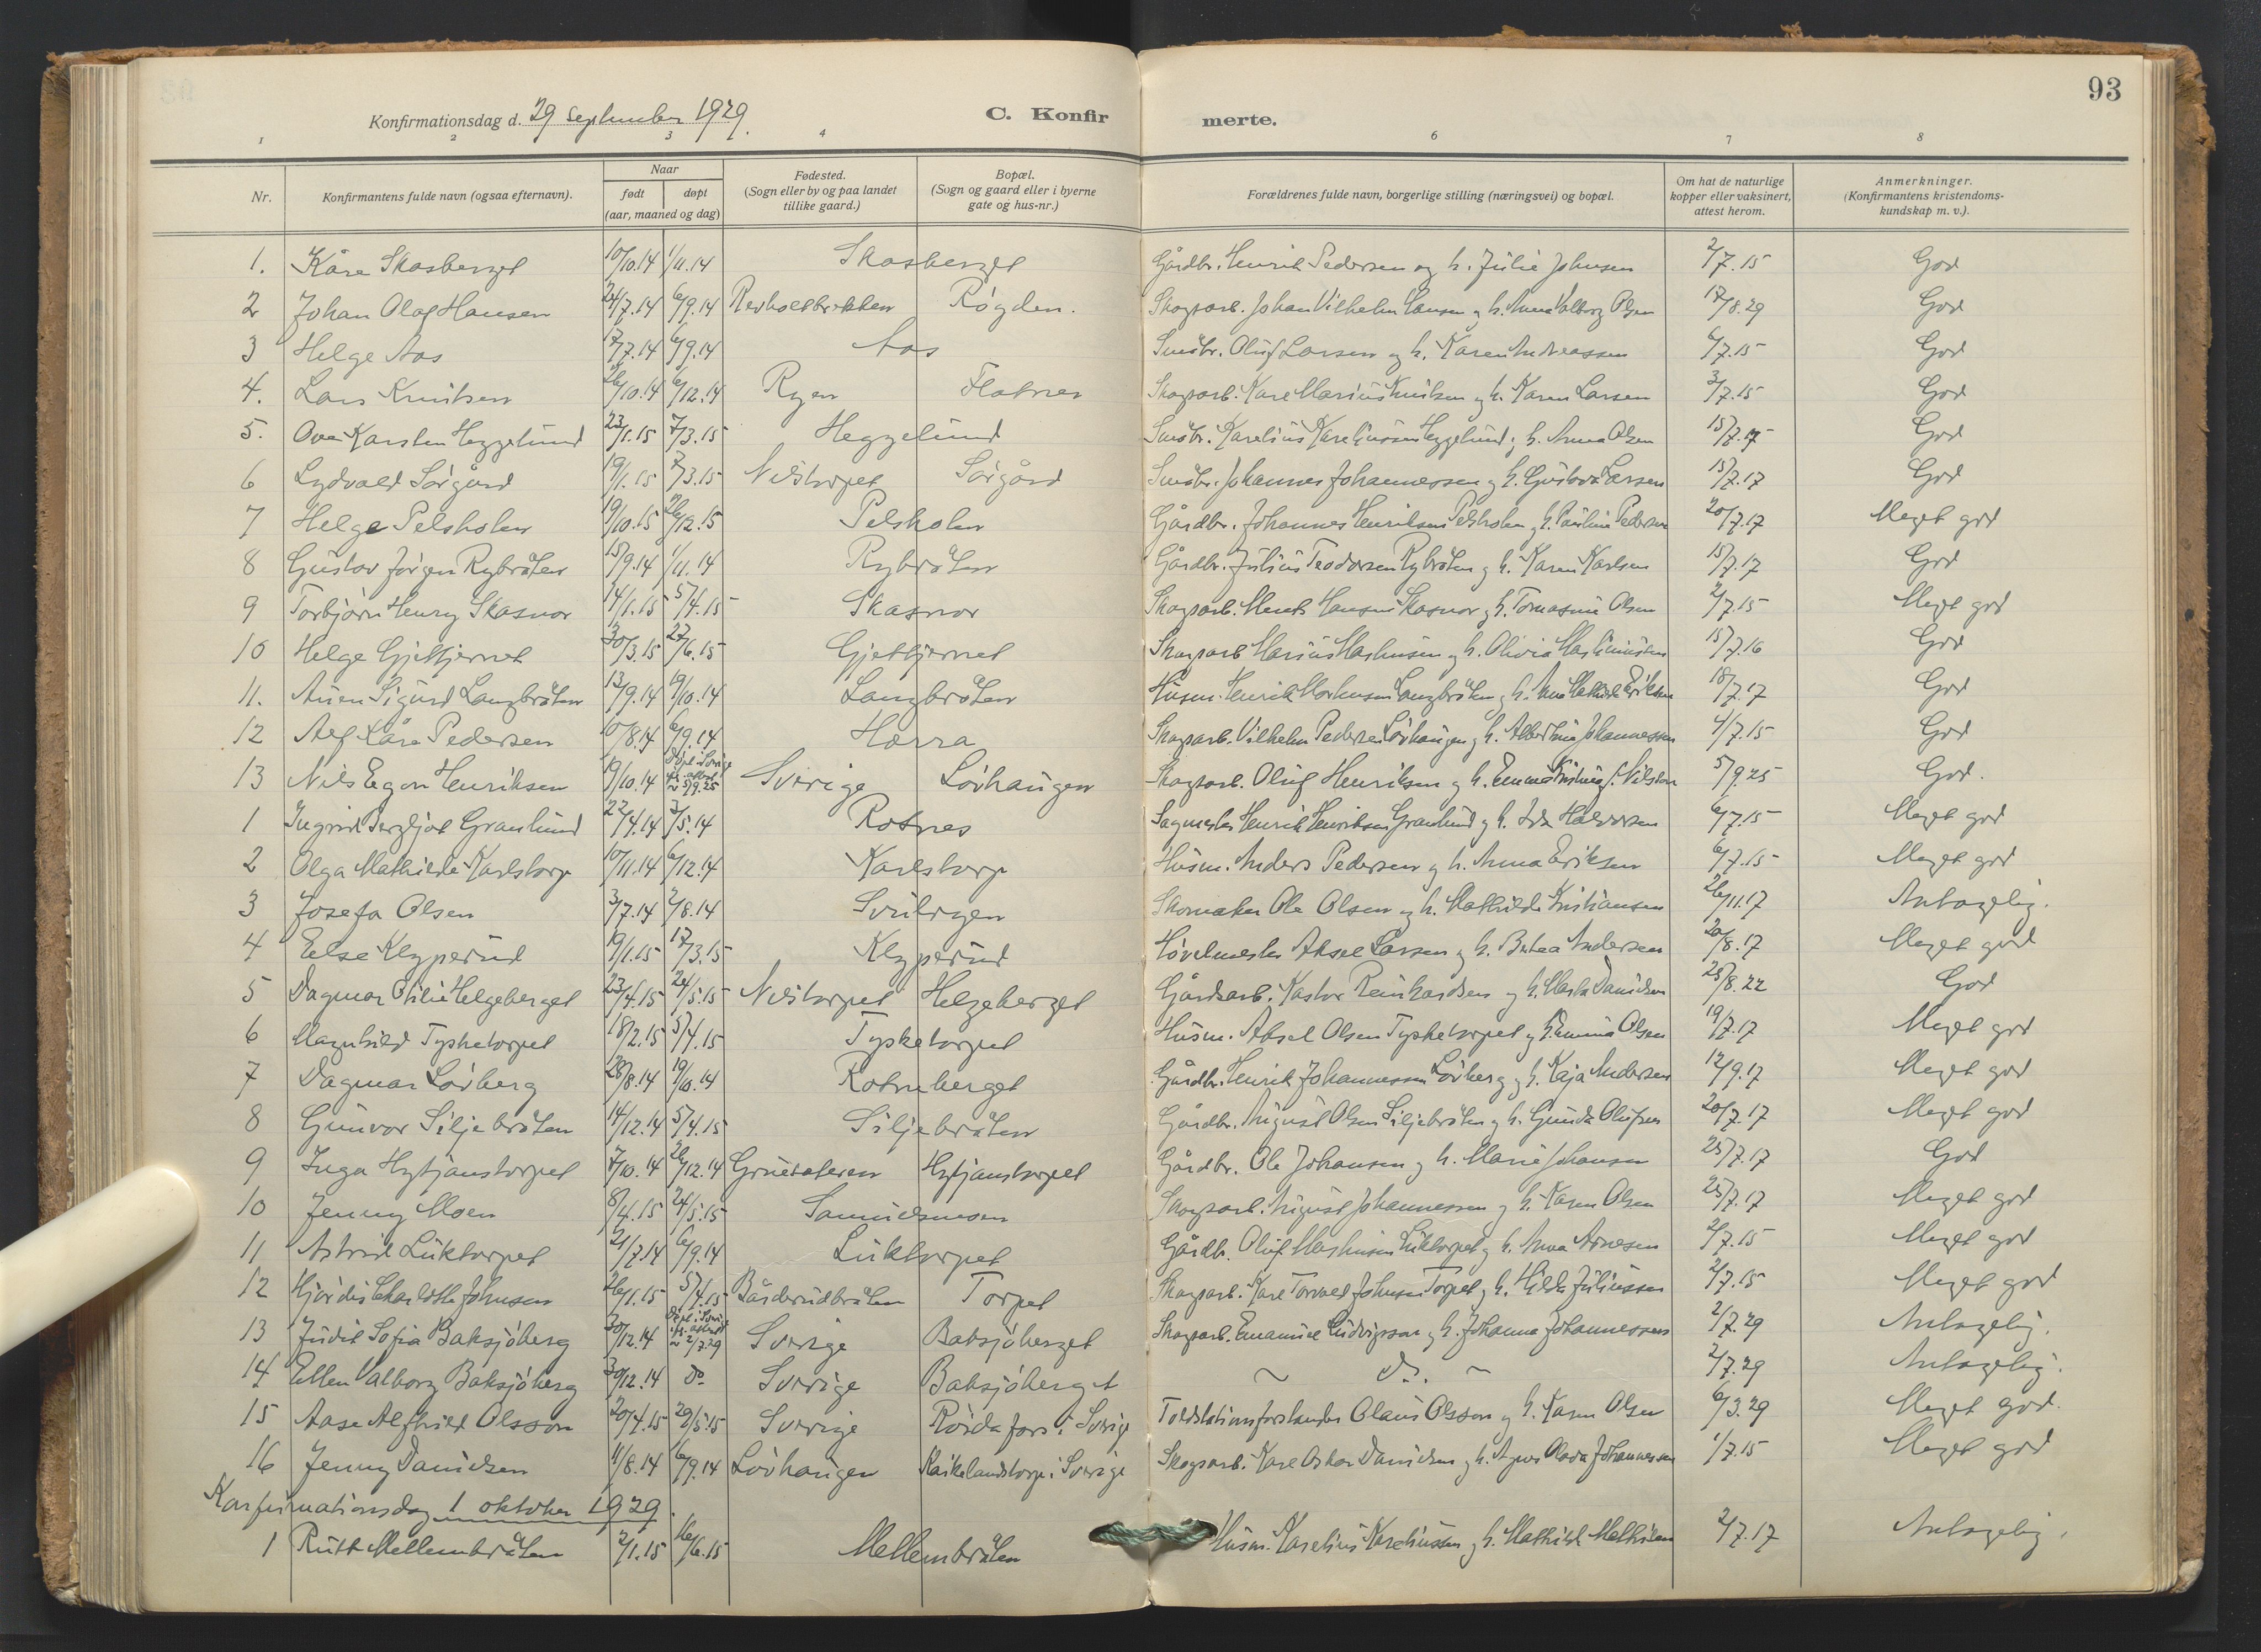 93
Konfirmationsdag d. 29 september 1929.
C. Konfirmerte.
1 2 3 4 6 7 8
Nr.
Konfirmantens fulde navn (ogsaa efternavn).
Naar
født døpt
(aar, maaned og dag)
Fødested.
(Sogn eller by og paa landet
tillike gaard.)
Bopæl.
(Sogn og gaard eller i byerne
gate og hus-nr.)
Forældrenes fulde navn, borgerlige stilling (næringsvei) og bopæl.
Om hat de naturlige
kopper eller vaksinert,
attest herom.
Anmerkninger.
(Konfirmantens kristendoms-
kundskap m. v.).
1. Kåre Skasberget 10/10.14 1/11.14 Skasberget Gårdbr. Henrik Pedersen og h. Julie Johnsen 2/7.15 God
2 Johan Olaf Hansen 24/7.14 6/9.14 Røgden. Skogsarb. Johan Vilhelm Hansen og h. Anna Valborg Olsen 17/8.29 God
3 Helge Aas 17/7.14 6/9.14 Aas Småbr. Oluf Larsen og h. Karen Andreassen 6/7.15 God
4. Lars Knutsen 26/10.14 6/12.14 Ryen Flatnes Skogsarb. Kare Marius Knutsen og h. Karen Larsen 3/7.15 God
5. Ove Karsten Heggelund 23/1.15 7/3.15 Heggelund Småbr. Karelius Kareliussen Heggelund og h. Anna Olsen 15/7.17 God
6 Lydvald Sørgård 19/1.15 7/3.15 Nilstorpet Sørgård Småbr. Johannes Johannessen og h. Gustava Larsen 15/7.17 God
7 Helge Pelsholen 19/10.15 26/12.15 Pelsholen Gårdbr. Johannes Henriksen Pelsholen og h. Pauline Pedersen 20/7.17 Meget god
8 Gustav Jørgen Rybråten 15/9.14 1/11.14 Rybråten Gårdbr. Julius Teodorsen Rybråten og h. Karen Karlsen 15/7.17 God
9 Torbjørn Henry Skasnor 14/1.15 5/4.15 Skasnor Skogsarb. Hansen Skasnor og h. Tomasine Olsen 2/7.15 Meget god
10 Helge Gjettjernet 30/3.15 27/6.15 Gjettjernet Skogsarb Marius Mathisen og h. Olivia 15/7.16 God
11. Sigurd Langbråten 13/9.14 19/10.14 Langbråten Husm. Henrik Langbråten og h. Anna Mathilde Eriksen 18/7.17 God
12 Alf Kåre Pedersen 10/8.14 6/9.14 Horra Skogsarb. Vilhelm Pedersen Løvhaugen og h. Albertine Johannessen 4/7.15 God
13 Nils Egon Henriksen 19/10.14 Døpt i Sverige flg. attest av 5/9.25 Sverige Løvhaugen Skogsarb. Oluf Henriksen og h. Emma Kristina f. Nilsson 5/9.25 God.
1 Ingrid Bergljot Granlund 22/4.14 3/5.14 Rotnes Sagmester Henrik Henriksen Granlund og h. Ida Halvorsen 6/7.15 Meget god
2 Olga Mathilde Karlstorp 10/11.14 6/12.14 Karlstorp Husm. Anders Pedersen og h. Anna Eriksen 6/7.15 Meget god
3 Josefa Olsen 3/7.14 2/8.14 Skomaker Ole Olsen og h. Mathilde Kristiansen 26/11.17 Antagelig.
4 Else Klyperud 19/1.15 17/3.15 Klyperud Høvelmester Aksel Larsen og h. Betea Andersen 20/8.17 Meget god
5 Dagmar Otilie Helgeberget 23/4.15 24/5.15 Nilstorpet Helgeberget Gårdsarb. Kastor Reinhardsen og h. Marta Danielsen 25/8.22 God
6 Magnhild Tysketorpet 18/2.15 5/4.15 Tysketorpet Husm. Aksel Olsen Tysketorpet og h. Emma Olsen 19/7.17 Meget god
7 Dagmar Løvberg 28/8.14 19/10.14 Rotneberget Gårdbr. Henrik Johannessen Løvberg og h. Kaja Andersen 12/9.17 Meget god
8 Gunvor Siljebråten 14/12.14 5/4.15 Siljebråten Gårdbr. August Olsen Siljebråten og h. Gunda Olufsen 20/7.17 Meget god
9 Inga Hytjanstorpet 7/10.14 26/12.14 Gruesæteren Hytjanstorpet Gårdbr. Ole Johansen og h. Marie Johansen 25/7.17 God
10 Jenny Moen 8/4.15 24/5.15 Samuelsmoen Skogsarb. August Johannessen og h. Karen Olsen 25/7.17 Meget god
11 Astrid Luktorpet 21/7.14 6/9.14 Luktorpet Gårdb. Oluf Mathisen Luktorpet og h. Anna Arnesen 2/7.15 Meget god
12 Hjørdis Charlotte Johnsen 26/1.15 5/4.15 Bårderudbråten Torpet Skogsarb. Kare Torvald Johnsen Torpet og h. Hilda Juliussen 2/7.15 Meget god
13 Judit Sofia Baksjøberg 30/12.14 Døpt i Sverige flg. attest av 2/7.29 Sverige Baksjøberget Skogsarb. Emanuel Ludvigsson og h. Johanna Johannessen 2/7.29 Antagelig.
14 Ellen Valborg Baksjøberg 30/12.14 do Sverige Baksjøberget ~ do. ~ 2/7.29 Antagelig.
15 Aase Alfhild Olsson 20/4.15 29/5.15 Sverige Röjdåfors i Sverige Tolstationsforstander Olaus Olsson og h. Karen Olsen 6/3.29 Meget god.
16 Jenny Danielsen 11/8.14 6/9.14 Løvhaugen Kaikelandstorp i Sverige Skogsarb. Kare Oskar Danielsen og h. Agnes Olava Johannessen 1/7.15 Meget god
Konfirmationsdag 1 oktober 1929.
1 Rutt Mellembråten 2/1.15 16/6.15 Mellembråten Husm. Karelius Kareliussen og h. Mathilde Mathisen 2/7.17 Antagelig.